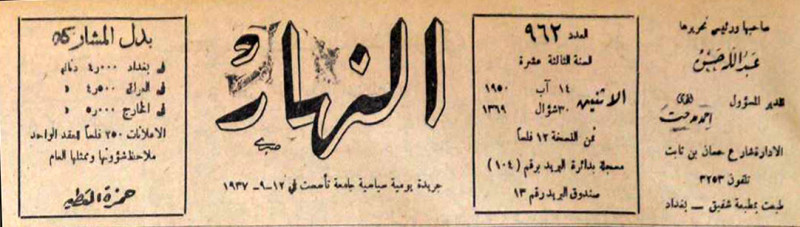 صاحبها ورئيس تحريرها
عبدالله حسن
المدير المسؤول
الادارة شارع حسان بن ثابت
تلفون ٣٢٥٣
طبعت بمطبعة شفيق — بغداد
العدد ٩٦٢
السنة الثالثة عشرة
الاثنين ١٤ آب ١٩٥٠
٣٠ شؤال ١٣٦٩
ثمن النسخة ١٢ فلساً
مسجلة بدائرة البريد برقم (١٠٤)
صندوق البريد رقم ١٣
النهار
صبري
جريدة يومية سياسية جامعة تأسست في ١٢-٩-١٩٣٧
بدل المشاركة
في بغداد ٤٫٠٠٠ دنانير
في العراق ٤٫٥٠٠ »
في الخارج ٥٫٠٠٠ »
الاعلانات ٢٥٠ فلساً للعقد الواحد
ملاحظ شؤونها وممثلها العام
حمزة القطب